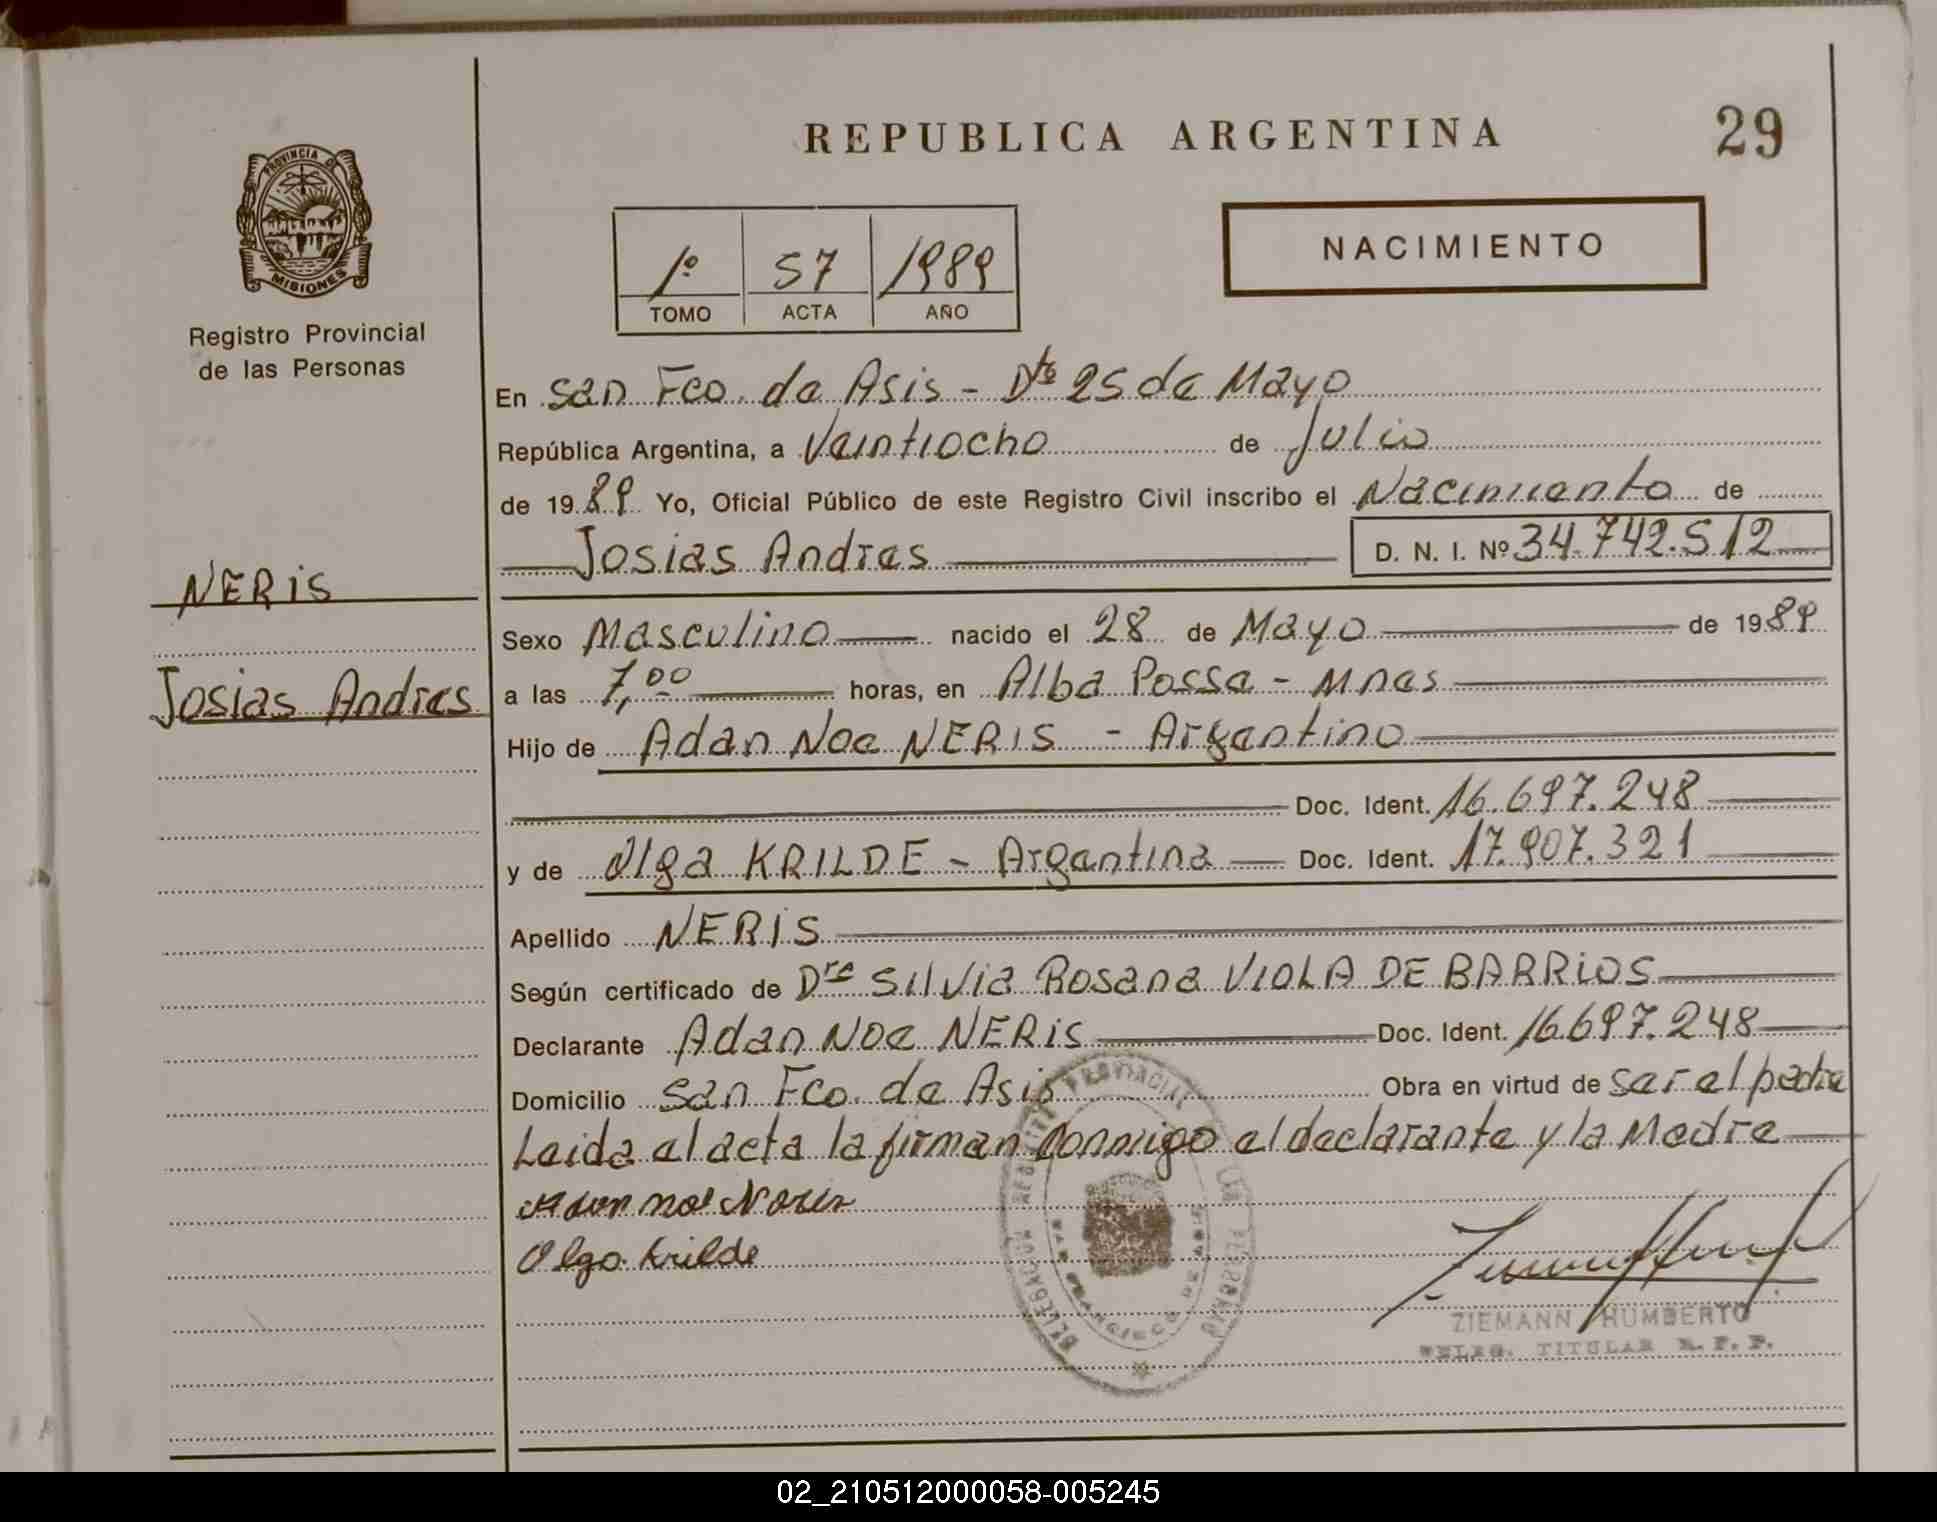 REPUBLICA ARGENTINA
29
PROVINCIA DE
MISIONES
Registro Provincial
de las Personas
1º 57 1989
TOMO ACTA AÑO
NACIMIENTO
En San Fco. de Asis - Dto 25 de Mayo
República Argentina, a Veintiocho de Julio
de 1989 Yo, Oficial Público de este Registro Civil inscribo el Nacimiento de
Josias Andres D. N. I. Nº 34.742.512
NERIS
Josias Andres
Sexo Masculino nacido el 28 de Mayo de 1989
a las 7,00 horas, en Alba Posse - Mnes
Hijo de Adan Noe NERIS - Argentino
Doc. Ident. 16.697.248
y de Olga KRILDE - Argentina Doc. Ident. 17.907.321
Apellido NERIS
Según certificado de Dra SilVia Rosana VIOLA DE BARRIOS
Declarante Adan Noe NERIS Doc. Ident. 16.697.248
Domicilio San Fco. de Asis Obra en virtud de ser el padre
Leida el acta la firman conmigo el declarante y la Madre
Adan noe Neris
Olga Krilde
DELEGACION REGISTRO PROVINCIAL DE LAS PERSONAS
SAN FRANCISCO DE ASIS
ZIEMANN HUMBERTO
DELEG. TITULAR R. P. P.
02_210512000058-005245